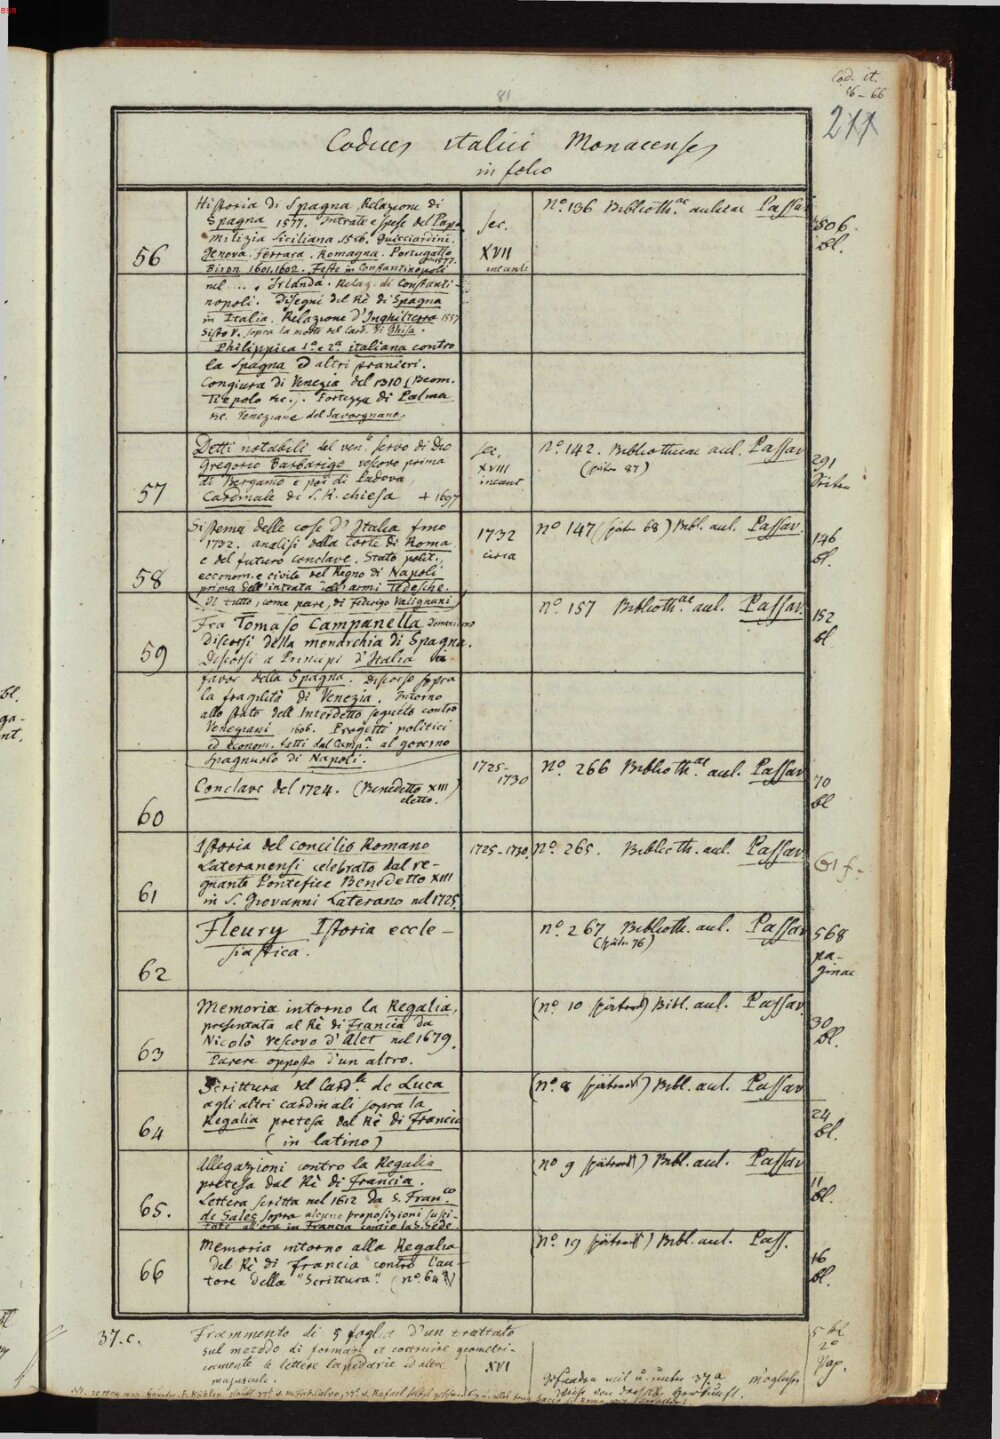 BSB
Cod. it.
56-66
81
211
Codices italici Monacenses
in folio
56
Historia di Spagna. Relazione di
Spagna 1577. Intrate e spese del Papa
Milizia Siciliana 1556. Guicciardini.
Genova. Ferrara. Romagna. Portugallo
1577.
Biron 1601. 1602. Feste in Constantinopoli
nel .... Irlanda. Relaz. di Constanti-
nopoli. Disegni del Rè di Spagna
in Italia. Relazione d'Inghilterra 1557
Sisto V. sopra la morte del Card. di Ghisa.
Philippica 1ª e 2ª italiana contro
la Spagna ed altri stranieri.
Congiura di Venezia del 1310 (Boem.
Tiepolo etc.). Fortezza di Palma
etc. Veneziane del Savorgnano.
sec.
XVII
ineunte
Nº 136 Biblioth.ae aulicae Passav
506
bl.
57
Detti notabili del ven.e servo di Dio
Gregorio Barbarigo vescovo prima
di Bergamo e poi di Padova,
Cardinale di S. R. chiesa + 1697
sec.
XVIII
ineunt.
Nº 142. Bibliothecae aul. Passav
(später 87)
291
Seiten
58
Sistema delle cose d'Italia fino
1732. analisi della Corte di Roma
e del futuro conclave. Stato polit.,
econom. e civile del Regno di Napoli
prima dell'intrata dell'armi Tedesche.
(Il tutto, come pare, di Federigo Valignani)
1732
circa
nº 147 (später 68) Bibl. aul. Passav.
146
bl.
59
Fra Tomaso Campanella domenicano
Discorsi della monarchia di Spagna.
Discorsi a Principi d'Italia in
favor della Spagna. Discorso sopra
la fragilità di Venezia. Intorno
allo stato dell'Interdetto seguito contro
Veneziani 1606. Progetti politici
ed econom. fatti dal Camp.a al governo
Spagnuolo di Napoli.
nº 157 Biblioth.ae aul. Passav.
152
bl
60
Conclave del 1724. (Benedetto XIII
eletto.)
1725-
1730
Nº 266 Biblioth.ae aul. Passav
70
bl
61
Istoria del concilio Romano
Lateranensi celebrato dal re-
gnante Pontefice Benedetto XIII
in S. Giovanni Laterano nel 1725.
1725-1730.
Nº 265. Biblioth. aul. Passav
61 f.
62
Fleury Istoria eccle-
siastica.
nº 267 Biblioth. aul. Passav
(später 76)
568
pa-
ginae
63
Memoria intorno la Regalia,
presentata al Rè di Francia da
Nicolò vescovo d'Alet nel 1679.
Parere opposto d'un altro.
(nº 10 späterer) Bibl. aul. Passav.
30
bl.
64
Scrittura del Card.le de Luca
agli altri cardinali sopra la
Regalia pretesa dal Rè di Francia
(in latino)
(nº 8 späterer) Bibl. aul. Passav
24
bl.
65.
Allegazioni contro la Regalia
pretesa dal Rè di Francia.
Lettera scritta nel 1612 da S. Fran.co
de Sales sopra alcune proposizioni susci-
tate all'ora in Francia contro la S. Sede
(nº 9 späterer) Bibl. aul. Passav
11
bl.
66
Memoria intorno alla Regalia
del Rè di Francia contro l'au-
tore della "Scrittura" (nº 64)
(nº 19 späterer) Bibl. aul. Pass.
16
bl.
37.c.
Frammento di 5 foglii d'un trattato
sul metodo di formare et costruire geometri-
camente le lettere lapidarie ed altre
majuscule.
XVI
Gefunden mit u. unter 37.a
5 bl
2º
Pap.